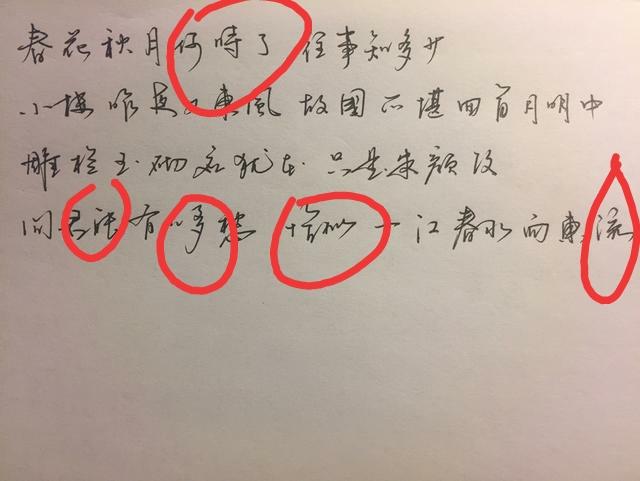 春花秋月何時了 往事知多少
小楼昨夜又東風 故國不堪回首月明中
雕栏玉砌应犹在 只是朱颜改
问君能有几多愁 恰似一江春水向東流